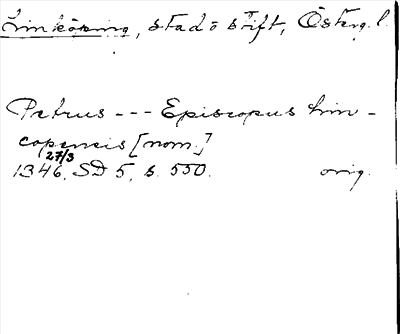 Linköping, stad o stift, Österg. l.
Petrus --- Episcopus Lin-
copensis [nom.]
27/3
1346. SD 5, s. 550. orig.